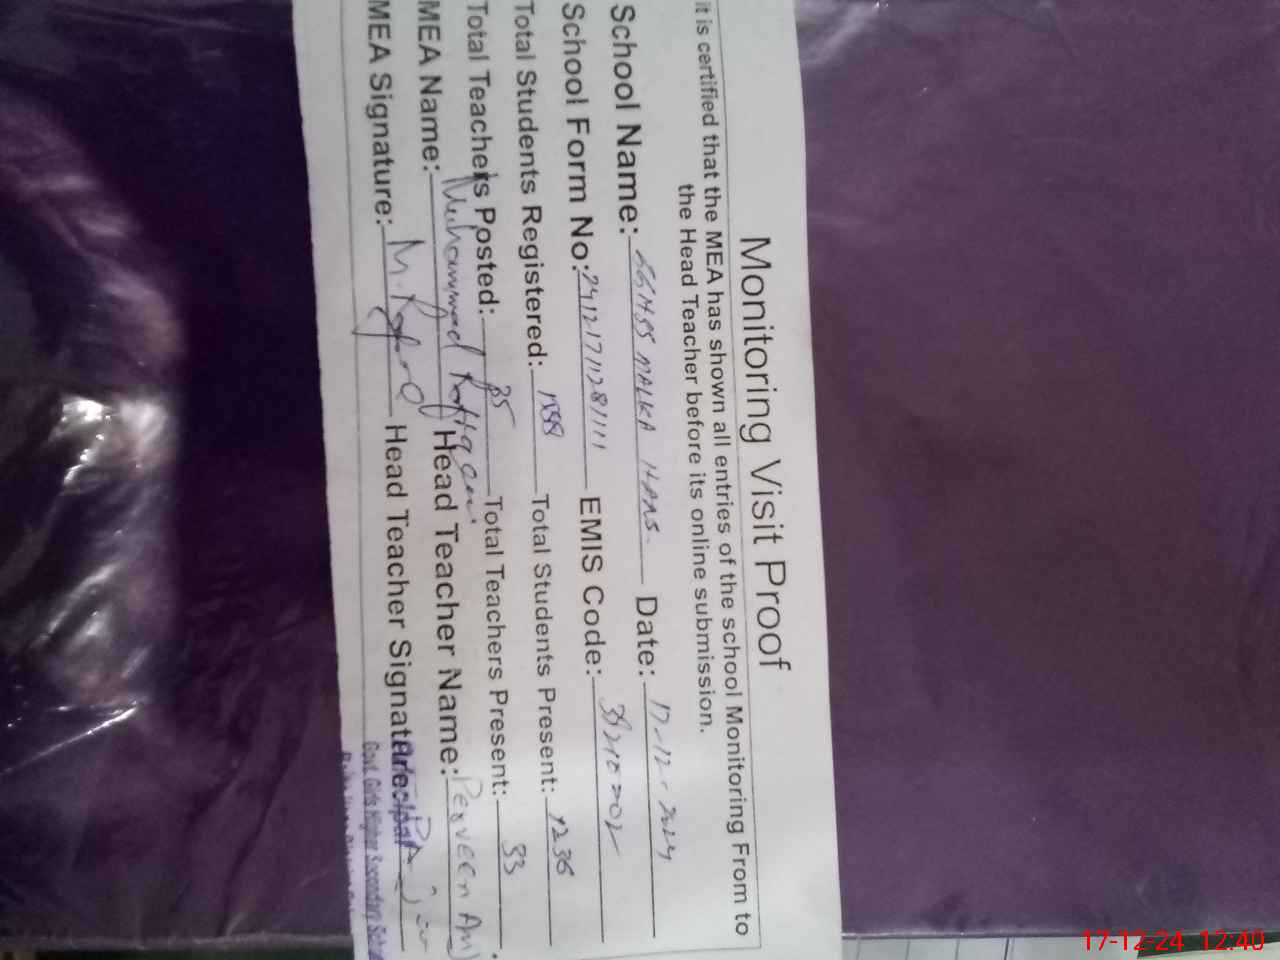 Monitoring Visit Proof
it is certified that the MEA has shown all entries of the school Monitoring From to
the Head Teacher before its online submission.
School Name: GGHSS MALKA HANS. Date: 17-12-2024
School Form No: 24121711281111 EMIS Code:
Total Students Registered: Total Students Present: 1236
Total Teachers Posted: 35 Total Teachers Present: 33
MEA Name: Muhammad Head Teacher Name: Perveen
MEA Signature: Head Teacher Signature
Principal
Govt. Girls Higher Secondary School
17-12-24 12:40